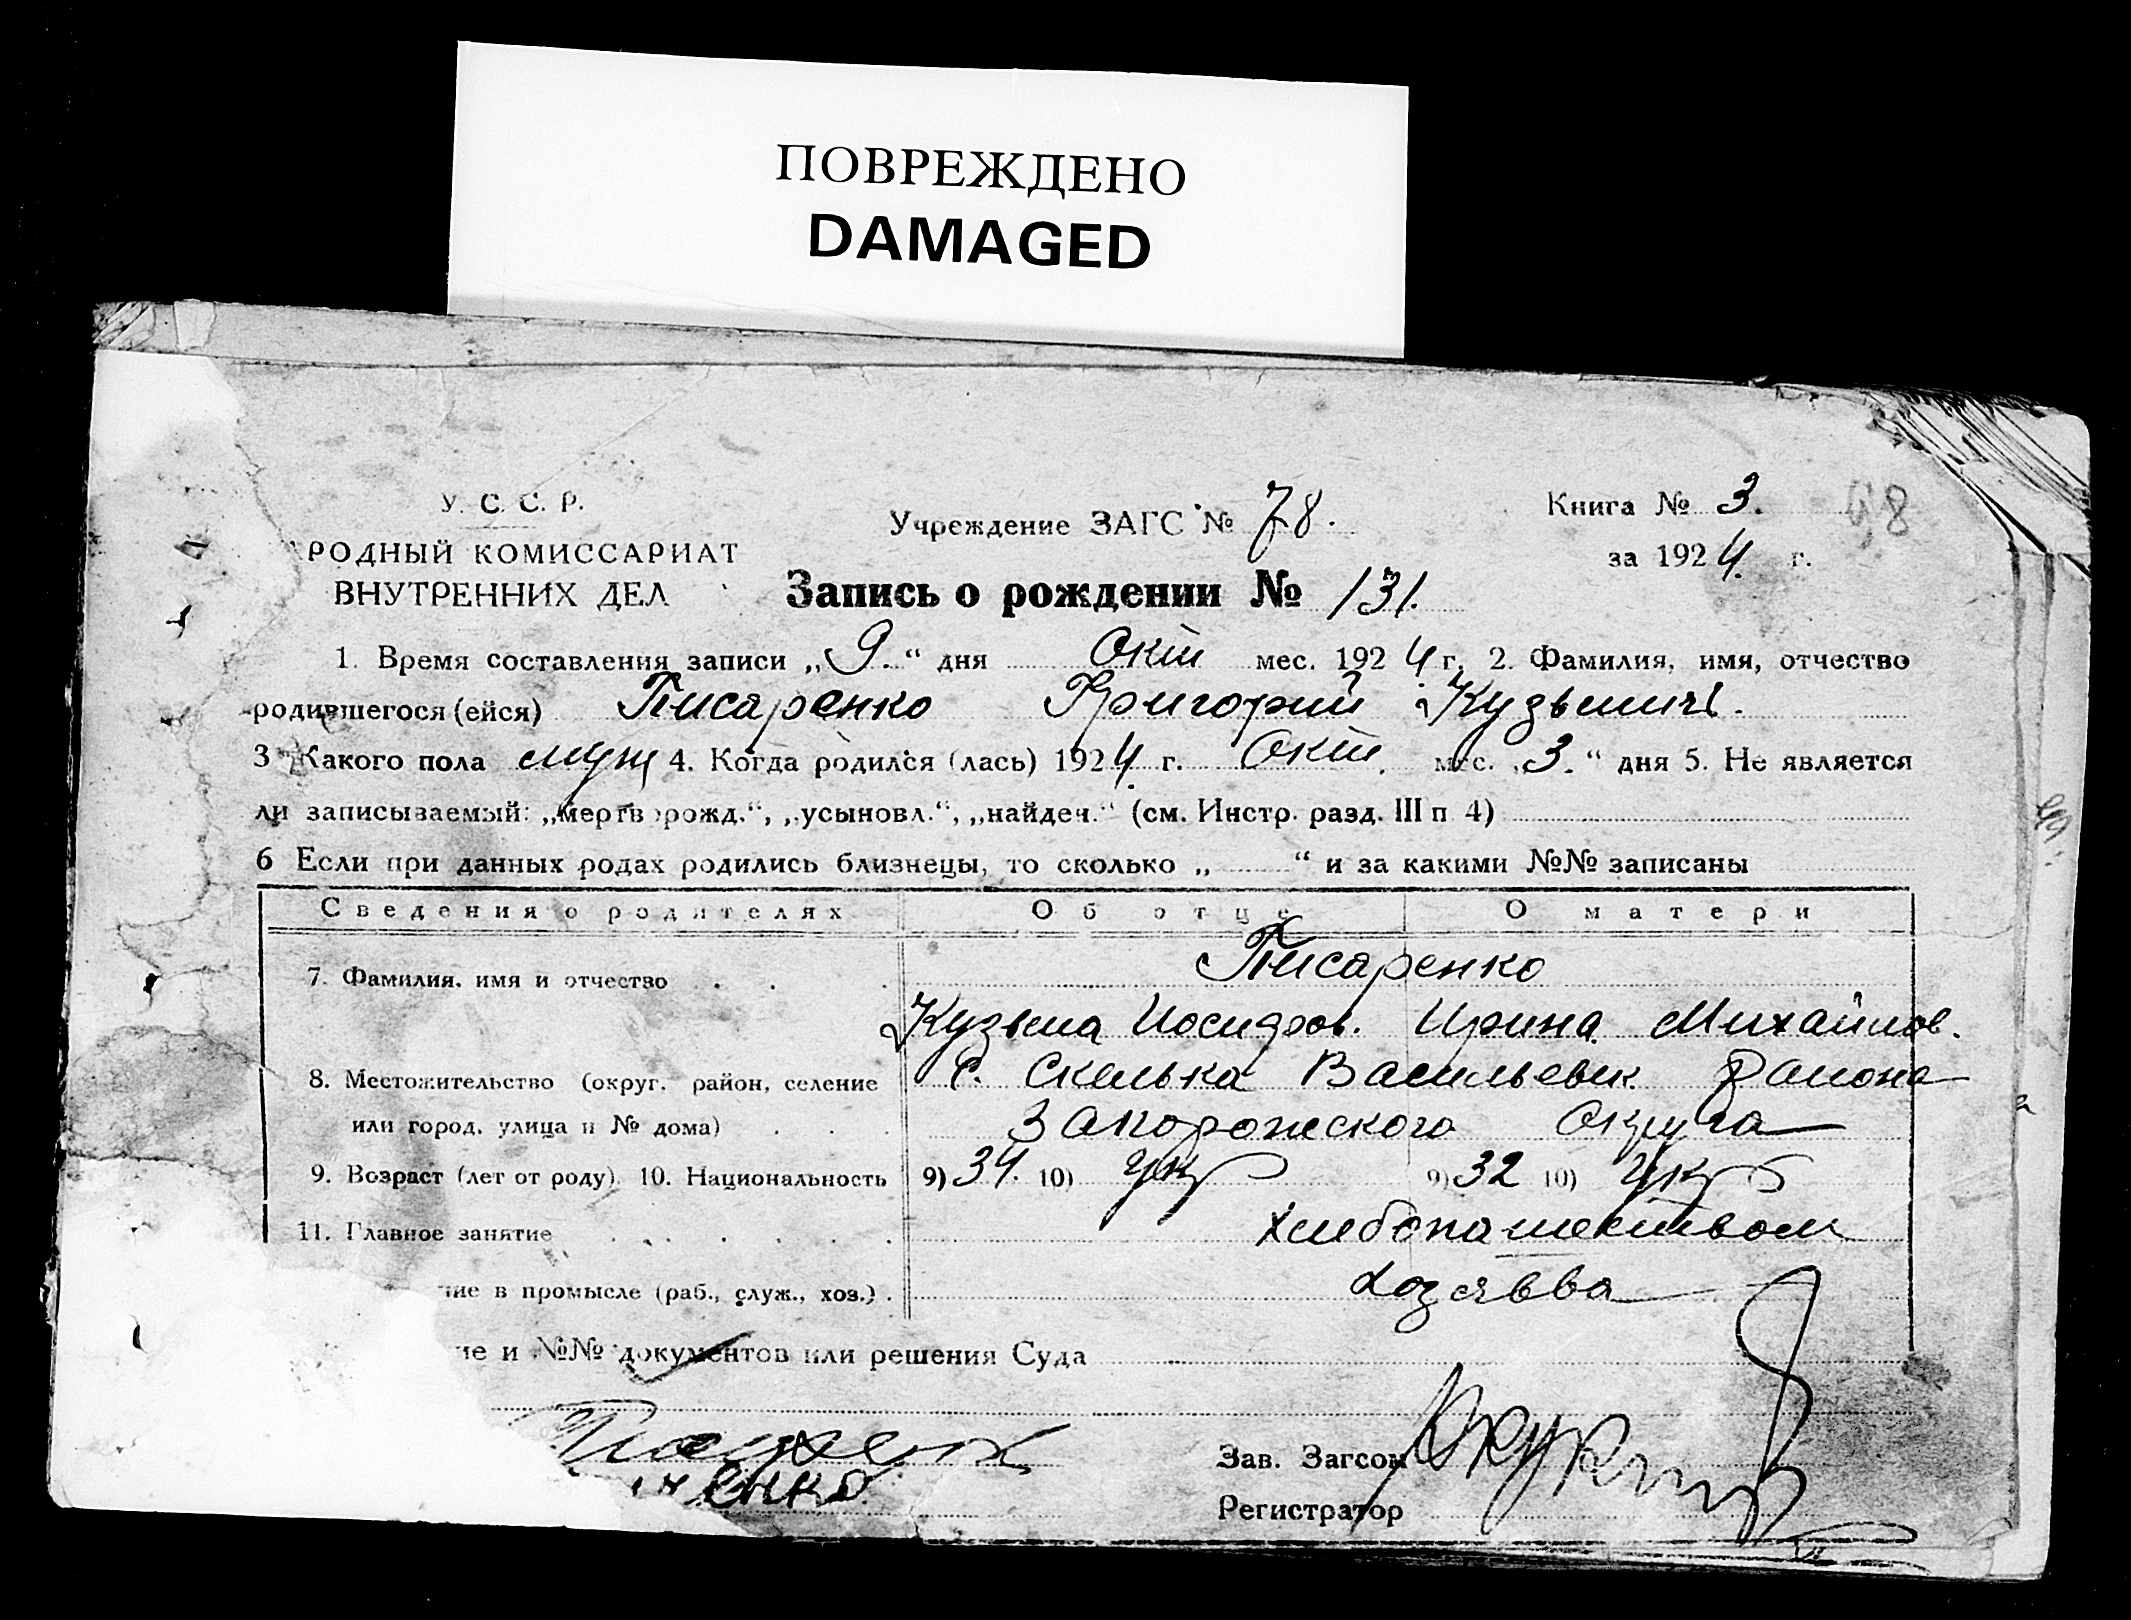 ПОВРЕЖДЕНО
DAMAGED
У. С. С. Р.
РОДНЫЙ КОМИССАРИАТ
ВНУТРЕННИХ ДЕЛ
Учреждение ЗАГС № 78.
Книга № 3. 98
за 1924 г.
Запись о рождении № 131.
1. Время составления записи „9.“ дня Окт мес. 1924 г. 2. Фамилия, имя, отчество
родившегося (ейся) Писаренко Григорий Кузьмичъ.
3 Какого пола муж 4. Когда родился (лась) 1924 г. Окт. мес. „3.“ дня 5. Не является
ли записываемый: „мертворожд.“, „усыновл.“, „найдеч.“ (см. Инстр. разд. III п 4)
6 Если при данных родах родились близнецы, то сколько „ “ и за какими №№ записаны
Сведения о родителях Об отце О матери
7. Фамилия, имя и отчество Писаренко
Кузьма Иосифов. Ирина Михайлов.
8. Местожительство (округ, район, селение с. Скелька Васильевск. Района
или город, улица и № дома) Запорожского Округа
9. Возраст (лет от роду) 10. Национальность 9) 34. 10) Укр 9) 32 10) Укр
11. Главное занятие Хлебопашеством
ние в промысле (раб., служ., хоз.) Хозяева
ие и №№ документов или решения Суда
енко
Зав. Загсом
Регистратор